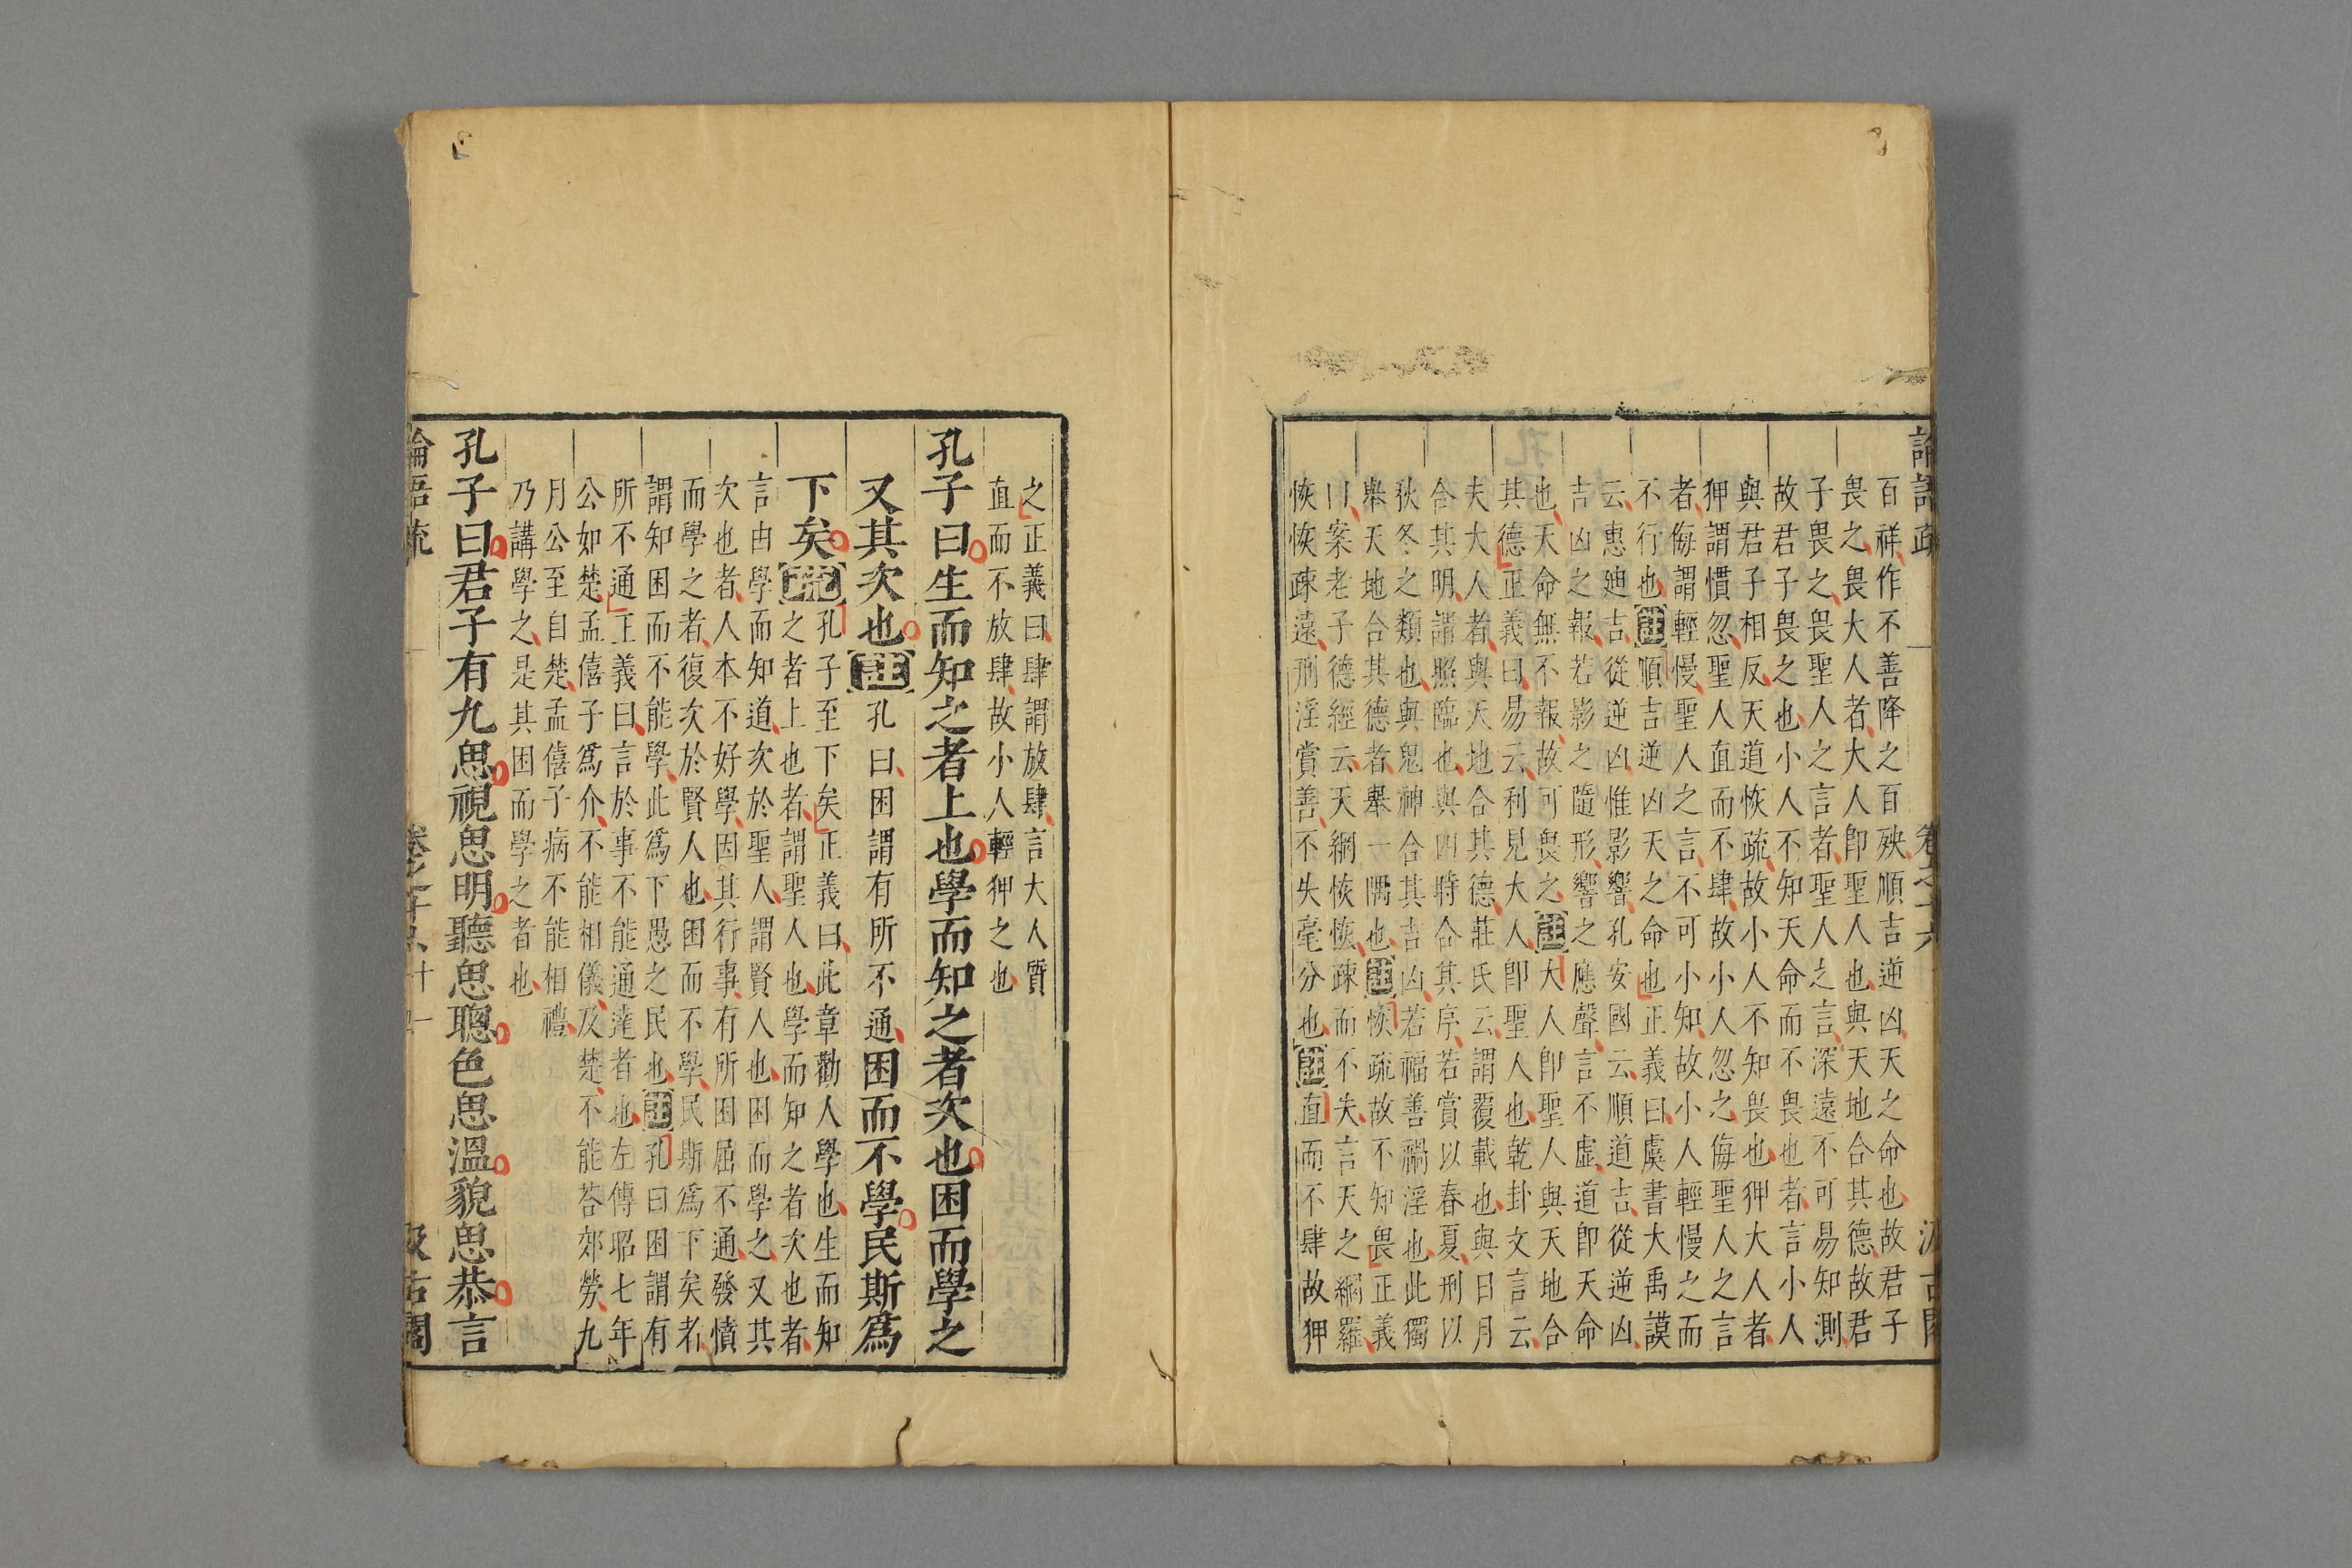 論語疏 卷之十六 汲古閣
百祥作不善降之百殃順吉逆凶天之命也故君子
畏之畏大人者大人即聖人也與天地合其德故君
子畏之畏聖人之言者聖人之言深遠不可易知測
故君子畏之也小人不知天命而不畏也者言小人
與君子相反天道恢疏故小人不知畏也狎大人者
狎謂慣忽聖人直而不肆故小人忽之侮聖人之言
者侮謂輕慢聖人之言不可小知故小人輕慢之而
不行也註順吉逆凶天之命也正義曰虞書大禹謨
云惠廸吉從逆凶惟影響孔安國云順道吉從逆凶
吉凶之報若影之隨形響之應聲言不虛道即天命
也天命無不報故可畏之註大人即聖人與天地合
其德正義曰易云利見大人即聖人也乾卦文言云
夫大人者與天地合其德莊氏云謂覆載也與日月
合其明謂照臨也與四時合其序若賞以春夏刑以
秋冬之類也與鬼神合其吉凶若福善禍淫也此獨
舉天地合其德者舉一隅也註恢疏故不知畏正義
曰案老子德經云天網恢恢疎而不失言天之網羅
恢恢疎遠刑淫賞善不失毫分也註直而不肆故狎
之正義曰肆謂放肆言大人質
直而不放肆故小人輕狎之也
孔子曰生而知之者上也學而知之者次也困而學之
又其次也註孔曰困謂有所不通困而不學民斯爲
下矣疏孔子至下矣正義曰此章勸人學也生而知
之者上也者謂聖人也學而知之者次也者
言由學而知道次於聖人謂賢人也困而學之又其
次也者人本不好學因其行事有所困屈不通發憤
而學之者復次於賢人也困而不學民斯爲下矣者
謂知困而不能學此爲下愚之民也註孔曰困謂有
所不通正義曰言於事不能通達者也左傳昭七年
公如楚孟僖子爲介不能相儀及楚不能荅郊勞九
月公至自楚孟僖子病不能相禮
乃講學之是其困而學之者也
孔子曰君子有九思視思明聽思聰色思溫貌思恭言
論語疏 卷之十六 十一 汲古閣